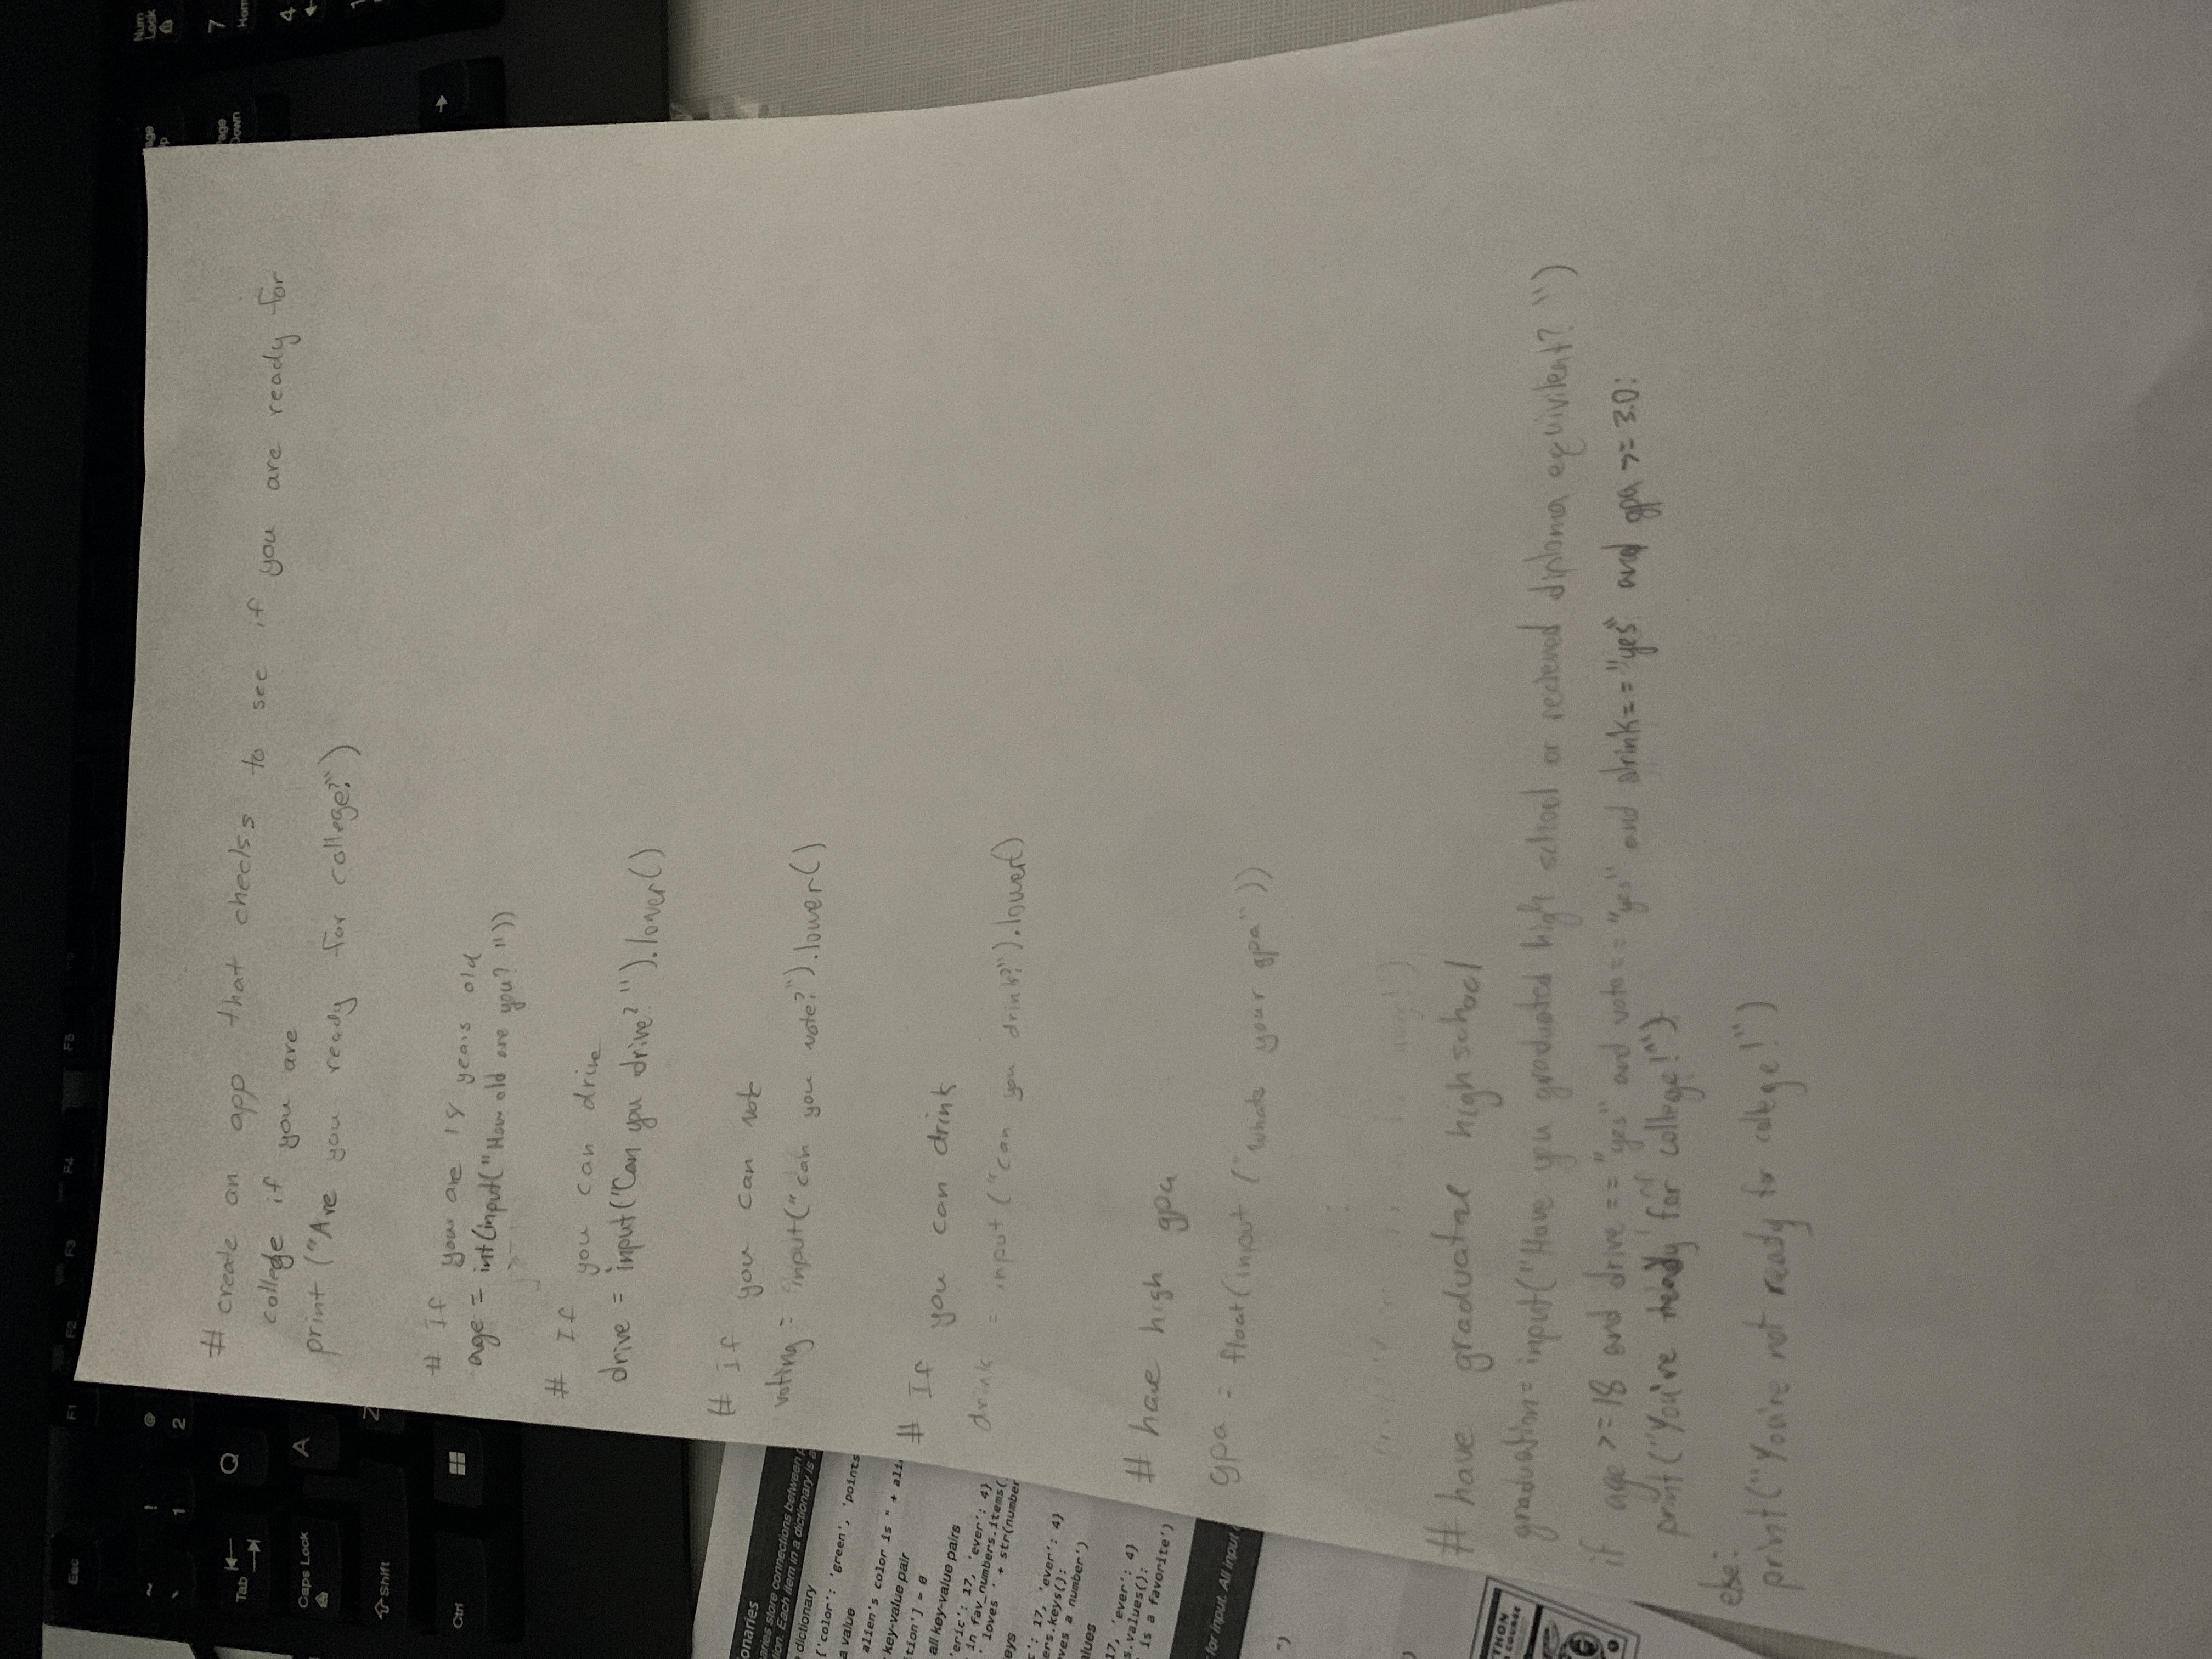 Esc F1 F2 F3 F4 F5
~ ` ! 1 @ 2
Tab Q
Caps Lock A
Shift Z
Ctrl
Num Lock
7
4
# create an app that checks to see if you are ready for
college if you are
print ("Are you ready for college?")
# If you are 18 years old
age = int(input("How old are you? "))
# If you can drive
drive = input("Can you drive? ").lower()
# If you can vote
voting = input("can you vote?").lower()
# If you can drink
drink = input ("can you drink?").lower()
# have high gpa
gpa = float(input ("whats your gpa"))
# have graduated highschool
graduation= input("Have you graduated high school or recieved diploma equivilent? ")
if age >= 18 and drive == "yes" and vote == "yes" and drink == "yes" and gpa >= 3.0:
print ("You're ready for college!")
else:
print("You're not ready for college!")
onaries
aries store connections between
tion. Each item in a dictionary is a
dictionary
{'color': 'green', 'points
a value
alien's color is " + ali
key-value pair
tion'] = 0
all key-value pairs
'eric': 17, 'ever': 4}
in fav_numbers.items(
' loves ' + str(number
eys
': 17, 'ever': 4}
ers.keys():
oves a number')
alues
17, 'ever': 4}
s.values():
is a favorite')
for input. All input
")
)
THON
COURSE